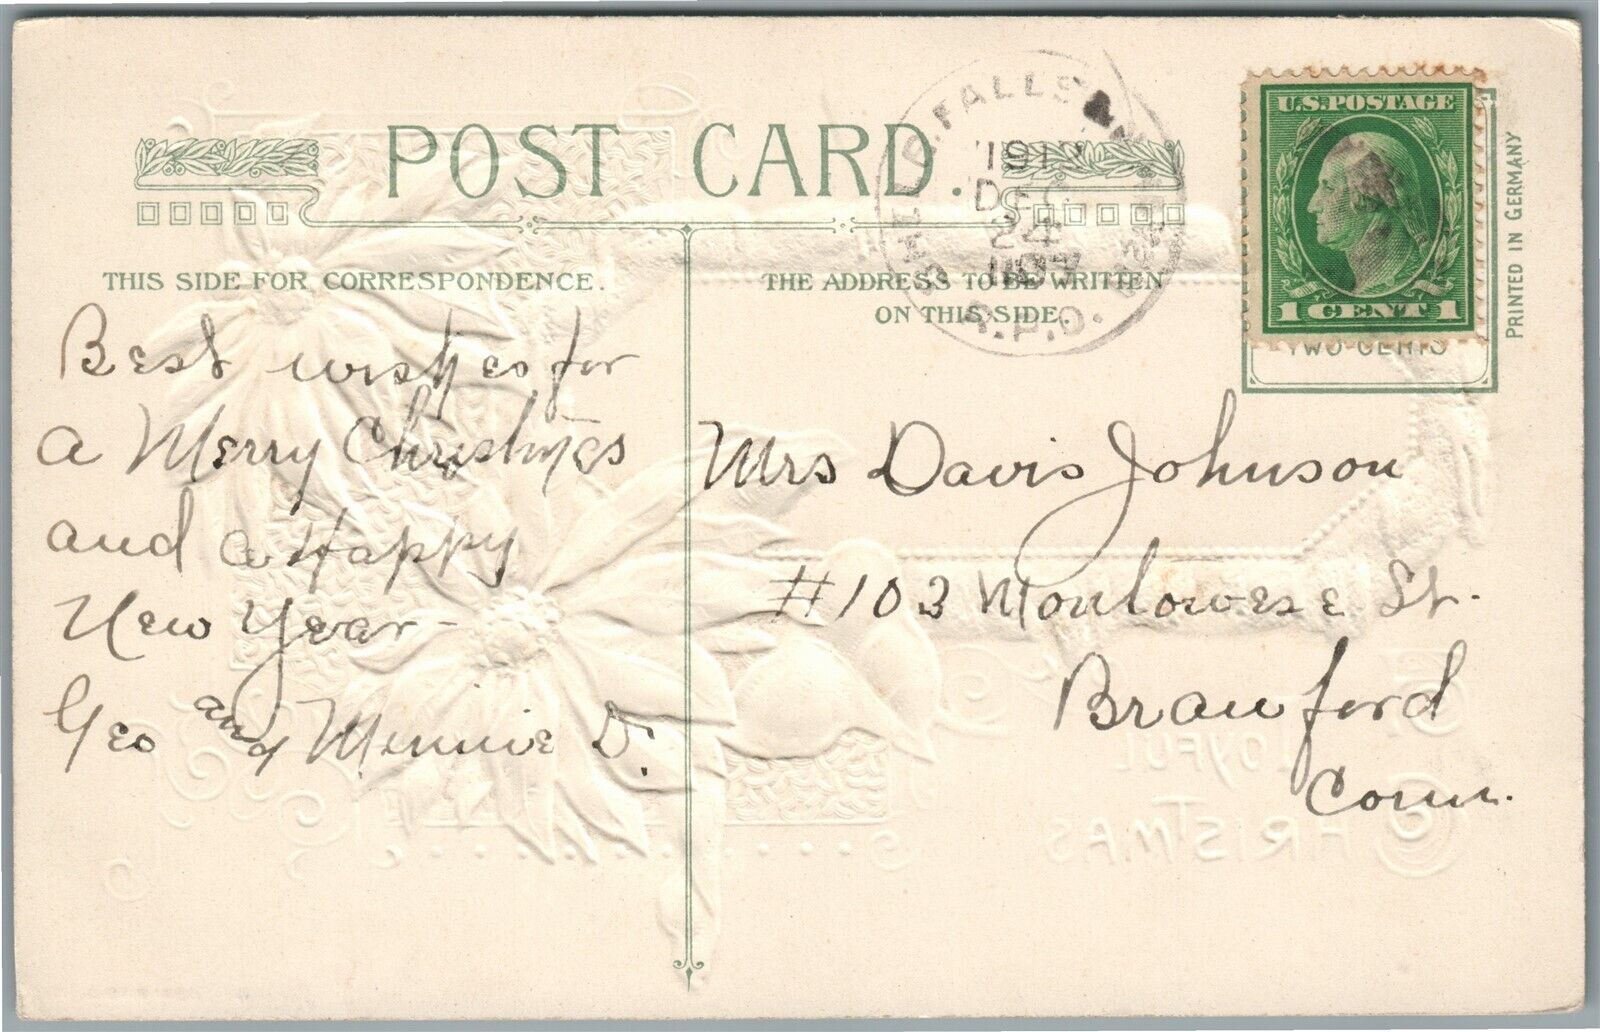 POST CARD.
THIS SIDE FOR CORRESPONDENCE.
Best wishes for
a Merry Christmas
and a Happy
New Year
Geo and Minnie D.
THE ADDRESS TO BE WRITTEN
ON THIS SIDE.
Mrs Davis Johnson
#103 Montowese St.
Branford
Conn.
SHEL. FALLS & N. HAVEN
1912
DEC
24
R.P.O.
U.S. POSTAGE
1 CENT 1
TWO CENTS
PRINTED IN GERMANY
JOYFUL
CHRISTMAS